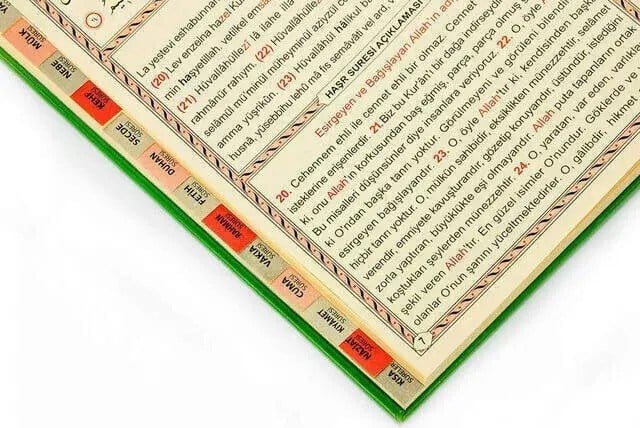 La yestevi eshabunnar
(20) Lev enzelna hazel
min haşyetillah, vetilkel
(21) Hüvallâhüllezî lâ ilehe ille
rahmânür rahıym. (22) Hüvallâhüllezî
selâmül mü'minül müheyminül aziyzül
amma yüşrikûn. (23) Hüvallâhül hâlikul
husnâ, yüsebbihu lehû mâ fis semâvâti vel ard,
HAŞR SURESİ AÇIKLAMASI
Esirgeyen ve Bağışlayan Allah'ın
20. Cehennem ehli ile cennet ehli bir olmaz. Cennet
isteklerine erişenlerdir. 21. Biz bu Kur'ân'ı bir dağa indirseydi
ki, onu Allah'ın korkusundan baş eğmiş, parça, parça olmuş
Bu misalleri düşünsünler diye insanlara veriyoruz. 22. O, öyle
ki O'ndan başka tanrı yoktur. Görünmeyeni ve görüleni
esirgeyen bağışlayandır. 23. O, öyle Allah'tır ki, kendisinden başka
hiçbir tanrı yoktur. O, mülkün sahibidir, eksiklikten münezzehtir, selâmet
verendir, emniyete kavuşturandır, gözetip koruyandır, üstündür, istediğini
zorla yaptıran, büyüklükte eşi olmayandır. Allah puta tapanların ortak
koştukları şeylerden münezzehtir. 24. O, yaratan, var eden,
şekil veren Allah'tır. En güzel isimler O'nundur. Göklerde
olanlar O'nun şanını yüceltmektedirler. O, gâlibdir, hikmet
7
MÜLK
SURESİ
NEBE
SURESİ
KEHF
SURESİ
SECDE
SURESİ
DUHAN
SURESİ
FETİH
SURESİ
RAHMAN
SURESİ
VAKIA
SURESİ
CUMA
SURESİ
KIYAMET
SURESİ
NAZİAT
SURESİ
KISA
SURELER